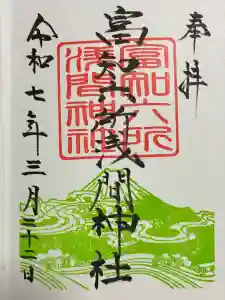 奉拝
富知六所浅間神社
富知六所
浅間神社
令和七年三月二十二日